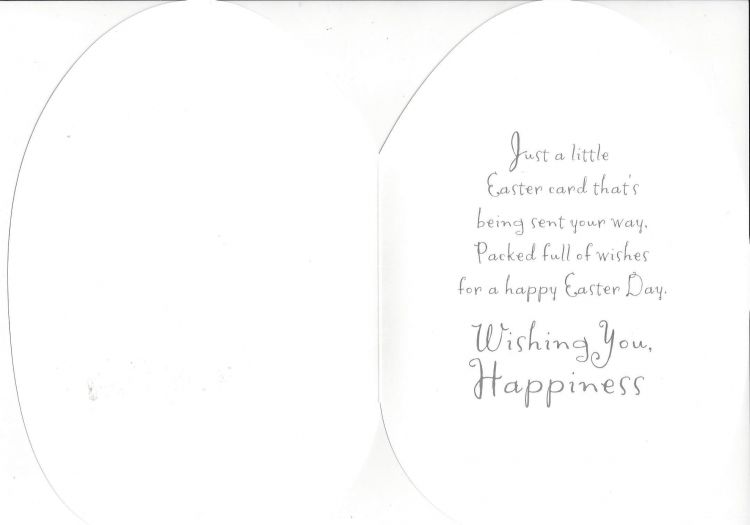 Just a little
Easter card that's
being sent your way.
Packed full of wishes
for a happy Easter Day.
Wishing You,
Happiness